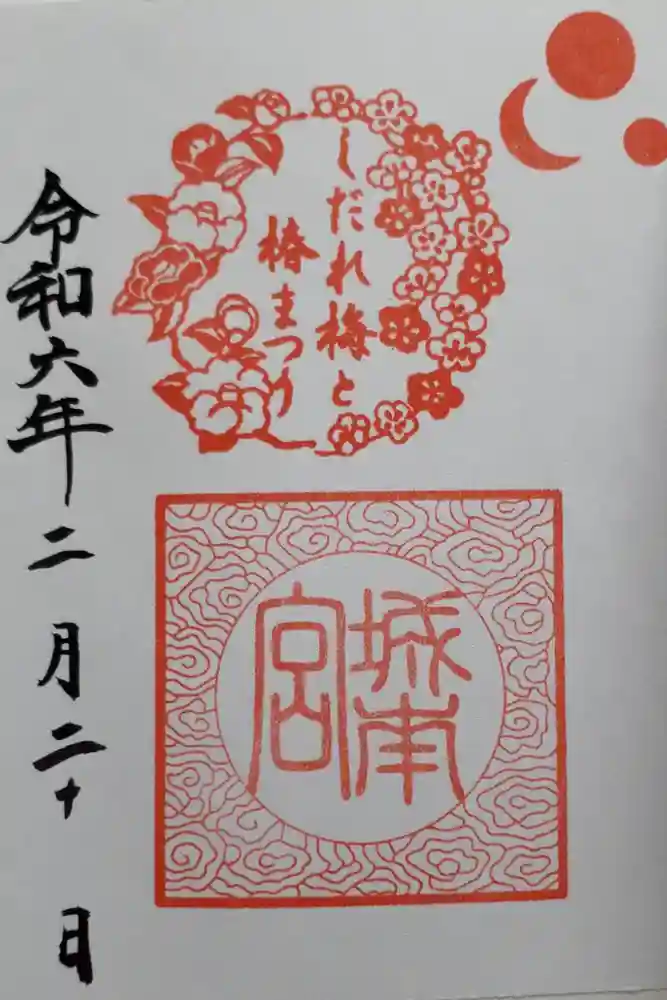 しだれ梅と
椿まつり
城南
宮
令和六年二月二十日